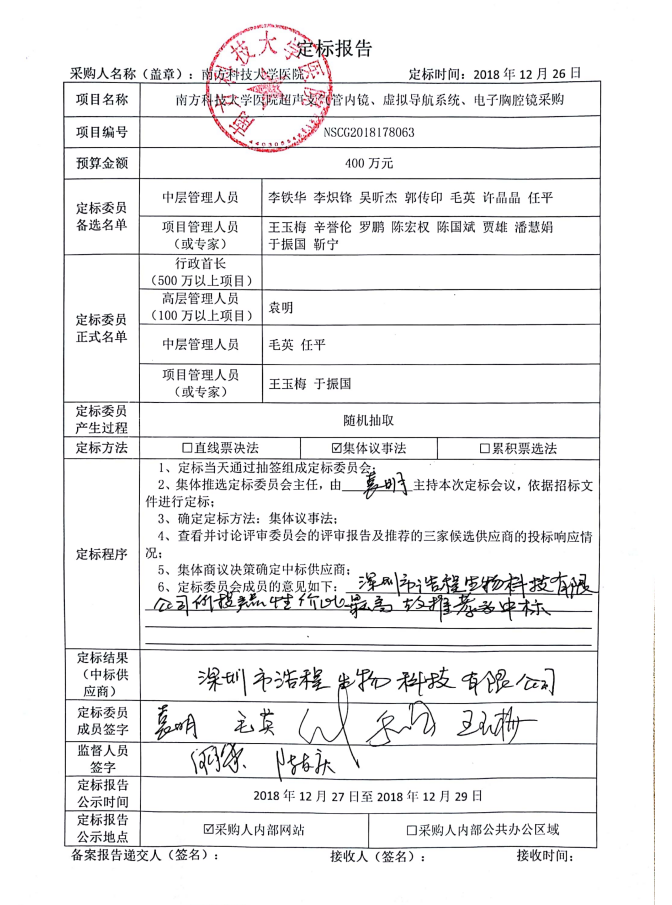 定标报告
采购人名称（盖章）：南方科技大学医院 定标时间：2018 年 12 月 26 日
项目名称 南方科技大学医院超声支气管内镜、虚拟导航系统、电子胸腔镜采购
项目编号 NSCG2018178063
预算金额 400 万元
定标委员
备选名单
中层管理人员 李铁华 李炽锋 吴听杰 郭传印 毛英 许晶晶 任平
项目管理人员
（或专家）
王玉梅 辛誉伦 罗鹏 陈宏权 陈国斌 贾雄 潘慧娟
于振国 靳宁
定标委员
正式名单
行政首长
（500 万以上项目）
高层管理人员
（100 万以上项目）
袁明
中层管理人员 毛英 任平
项目管理人员
（或专家）
王玉梅 于振国
定标委员
产生过程
随机抽取
定标方法 ☐直线票决法 ☑集体议事法 ☐累积票选法
定标程序
1、定标当天通过抽签组成定标委员会；
2、集体推选定标委员会主任，由 袁明 主持本次定标会议，依据招标文
件进行定标；
3、确定定标方法：集体议事法；
4、查看并讨论评审委员会的评审报告及推荐的三家候选供应商的投标响应情
况；
5、集体商议决策确定中标供应商；
6、定标委员会成员的意见如下：深圳市浩程生物科技有限
公司 性价比最高 故推荐 中标
定标结果
（中标供
应商）
深圳市浩程生物科技有限公司
定标委员
成员签字
袁明 毛英 王玉梅
监督人员
签字
定标报告
公示时间
2018 年 12 月 27 日至 2018 年 12 月 29 日
定标报告
公示地点
☑采购人内部网站 ☐采购人内部公共办公区域
备案报告递交人（签名）： 接收人（签名）： 接收时间：
南方科技大学医院